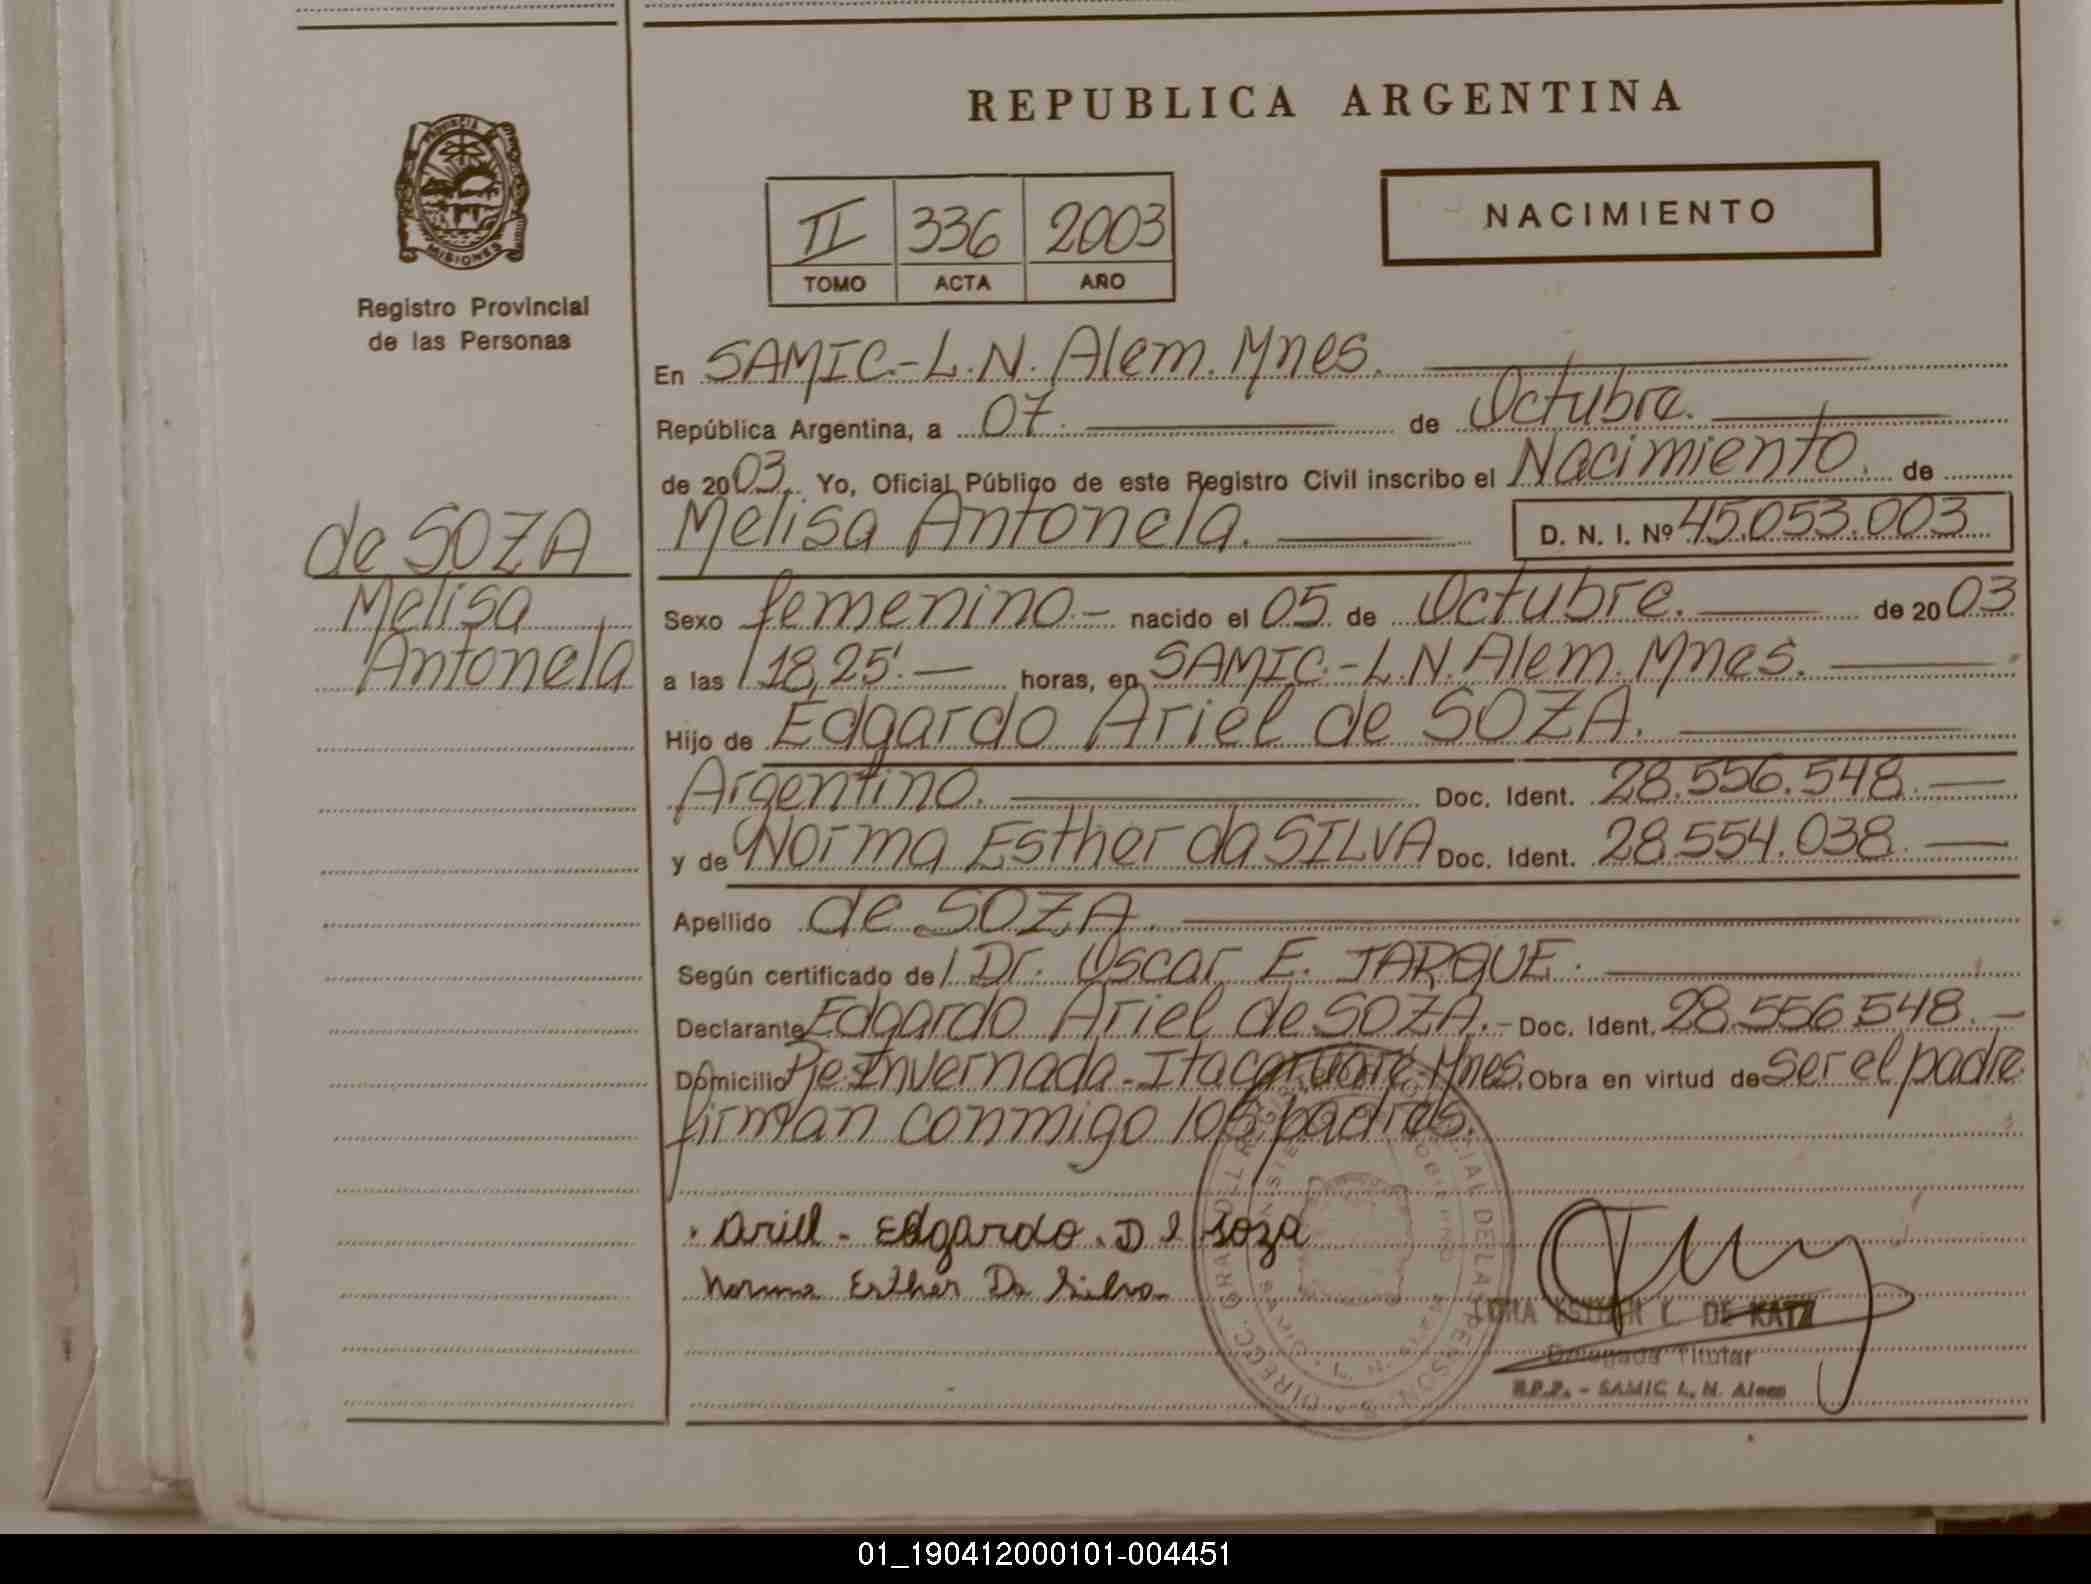 REPUBLICA ARGENTINA
PROVINCIA
MISIONES
Registro Provincial
de las Personas
II 336 2003
TOMO ACTA AÑO
NACIMIENTO
En SAMIC.-L.N. Alem. Mnes.
República Argentina, a 07. de Octubre.
de 2003. Yo, Oficial Público de este Registro Civil inscribo el Nacimiento. de
Melisa Antonela. D. N. I. Nº 45.053.003
de SOZA
Melisa
Antonela
Sexo femenino.- nacido el 05 de Octubre. de 2003
a las 18,25'.- horas, en SAMIC.-L.N. Alem. Mnes.
Hijo de Edgardo Ariel de SOZA.
Argentino. Doc. Ident. 28.556.548.-
y de Norma Esther da SILVA Doc. Ident. 28.554.038.-
Apellido de SOZA.
Según certificado de Dr. Oscar E. JARQUE.
Declarante Edgardo Ariel de SOZA.- Doc. Ident. 28.556.548.-
Domicilio Invernada-Itacaruaré-Mnes. Obra en virtud de ser el padre
firman conmigo los padres.
Ariel - Edgardo. D Soza
Norma Esther Da Silva
ESTHER L. DE KATZ
Delegada Titular
R.P.P. - SAMIC L. N. Alem
01_190412000101-004451